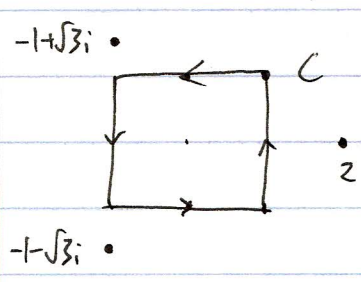 -1+√3i
C
2
-1-√3i